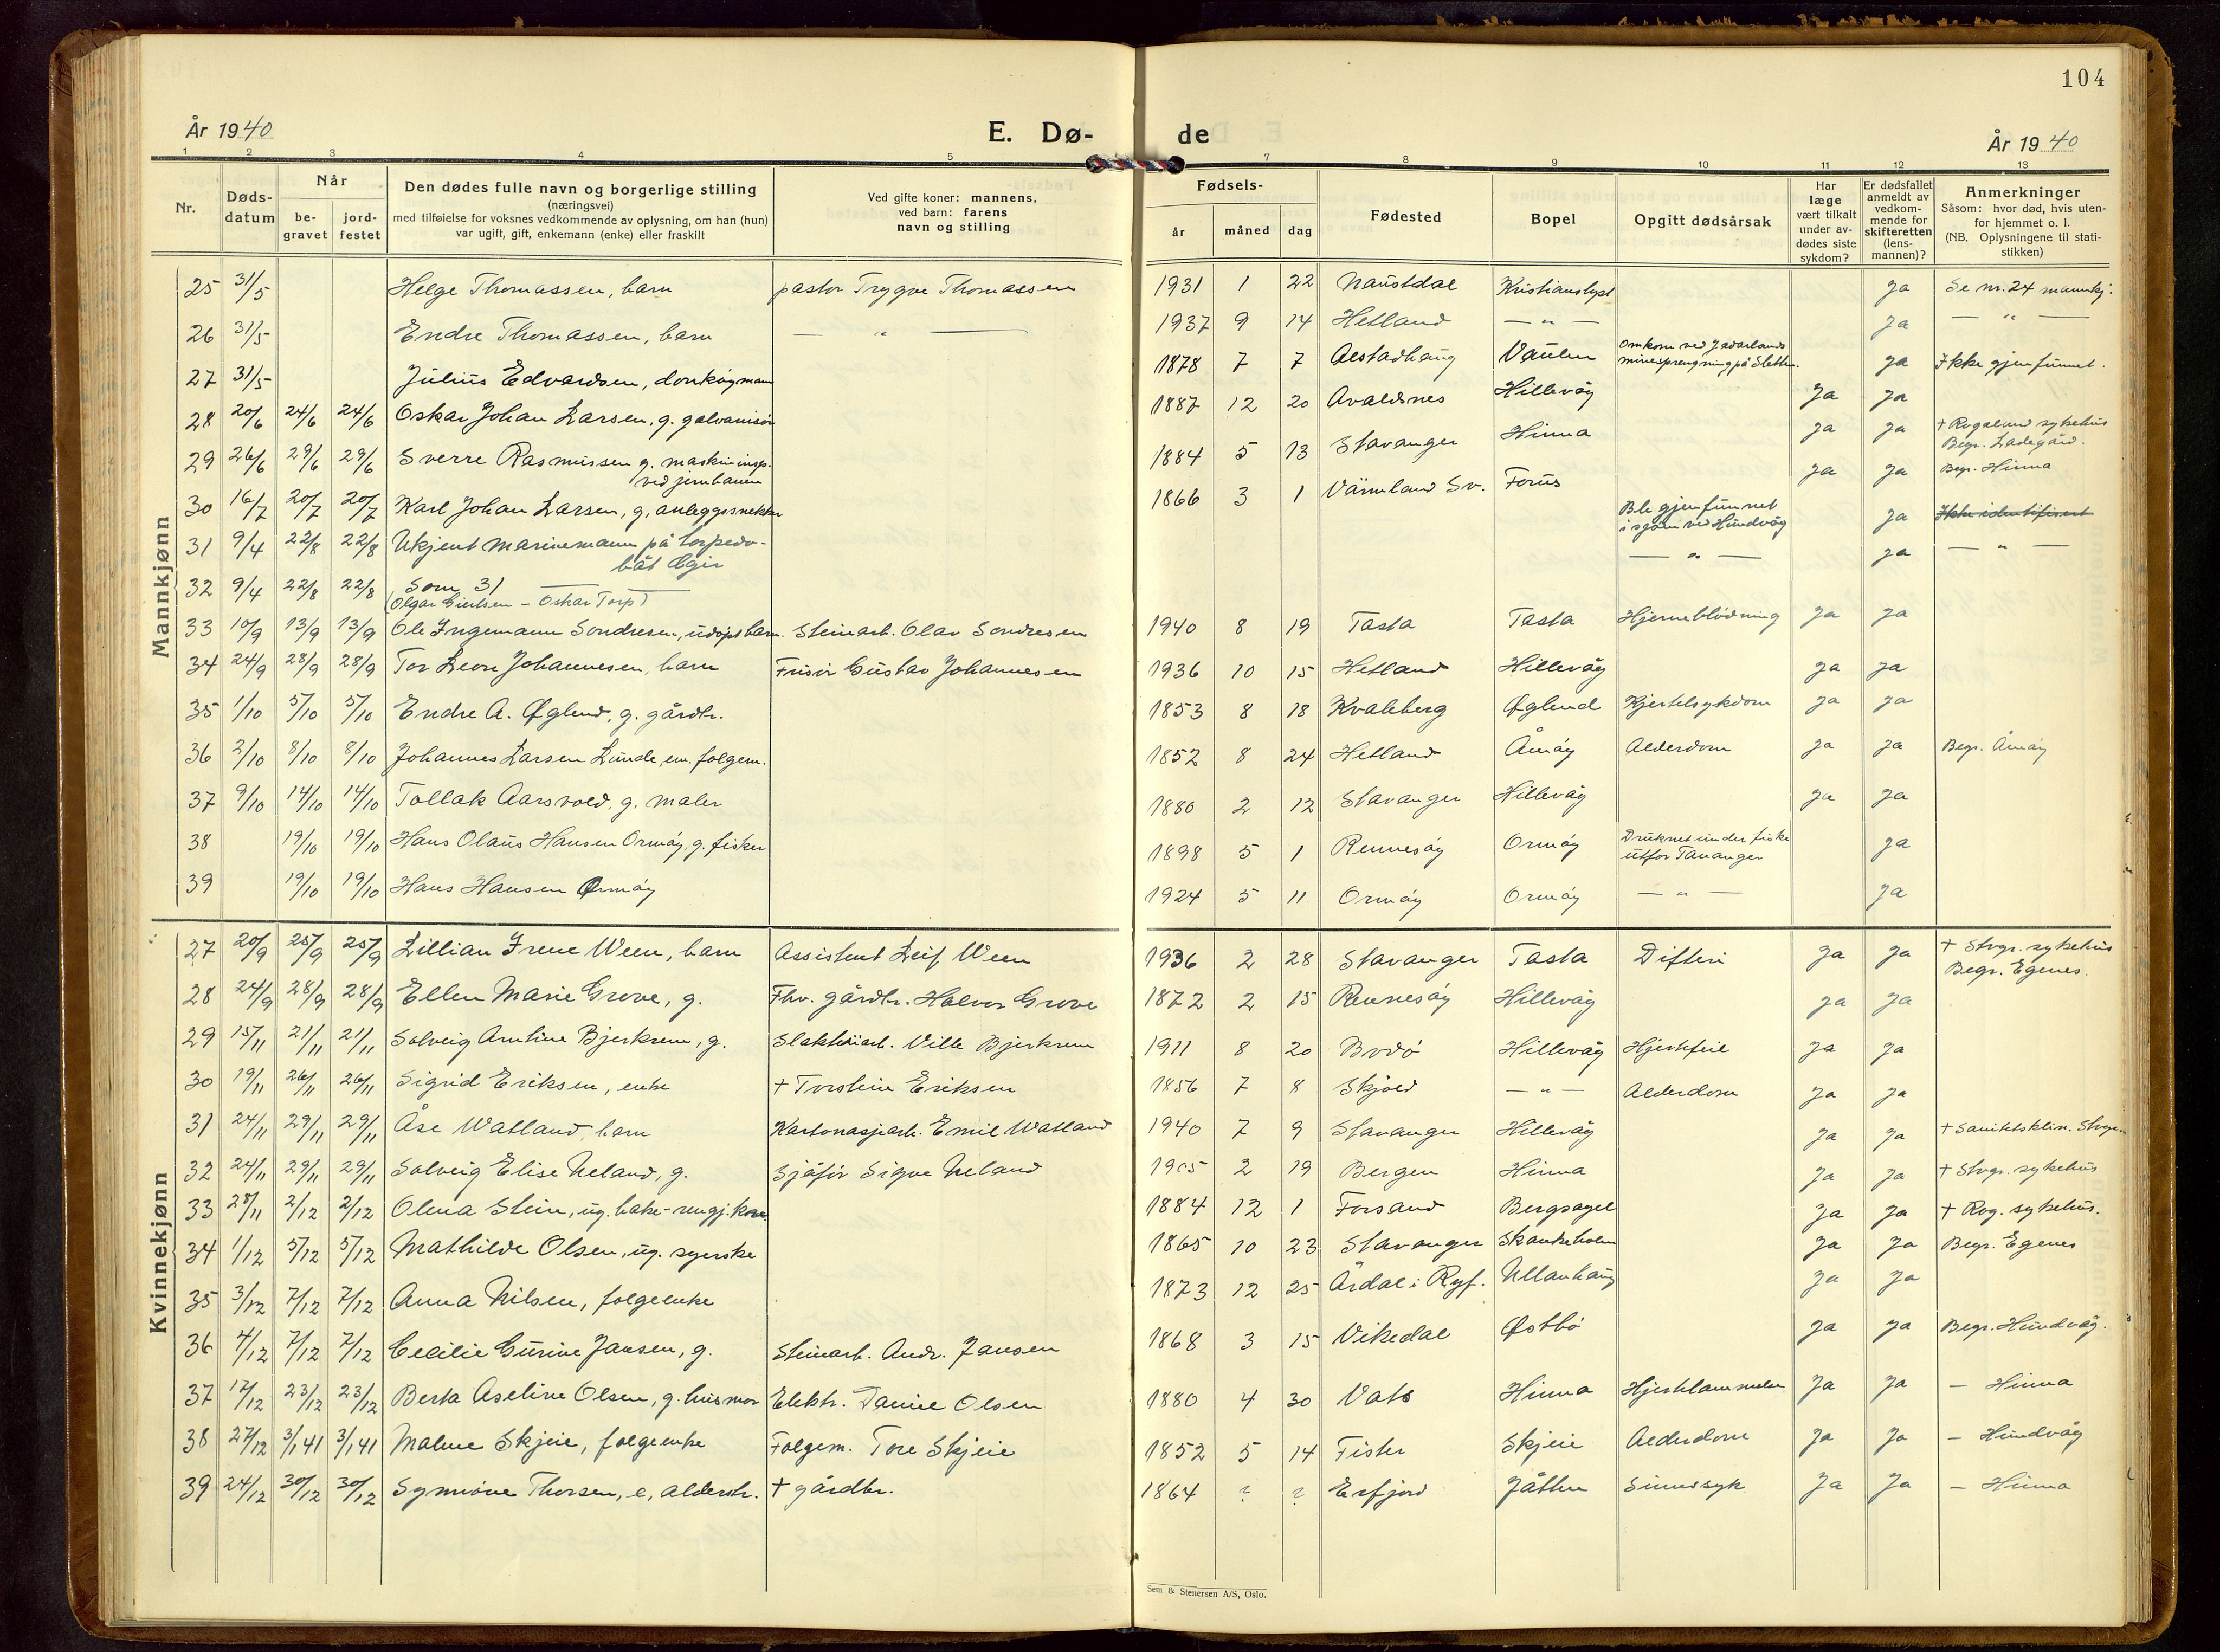 104
År 1940
E. Dø-
de
År 1940
1 2 3 4 5 7 8 9 10 11 12 13
Nr.
Døds-
datum
Når
be-
gravet
jord-
festet
Den dødes fulle navn og borgerlige stilling
(næringsvei)
med tilføielse for voksnes vedkommende av oplysning, om han (hun)
var ugift, gift, enkemann (enke) eller fraskilt
Ved gifte koner: mannens,
ved barn: farens
navn og stilling
Fødsels-
år måned dag
Fødested
Bopel
Opgitt dødsårsak
Har
læge
vært tilkalt
under av-
dødes siste
sykdom?
Er dødsfallet
anmeldt av
vedkom-
mende for
skifteretten
(lens-
mannen)?
Anmerkninger
Såsom: hvor død, hvis uten-
for hjemmet o. l.
(NB. Oplysningene til stati-
stikken)
Mannkjønn
25 31/5 Helge Thomassen, barn pastor Trygve Thomassen 1931 1 22 Naustdal Kristianslyst ja Se nr. 24 mannkj.
26 31/5 Endre Thomassen, barn — " — 1937 9 14 Hetland — " — ja — " —
27 31/5 Julius Edvardsen, donkøymann 1878 7 7 Vaulen Omkom ved Jadarlands
minesprengning på Sletten. ja Ikke gjenfunnet.
28 20/6 24/6 24/6 Oskar Johan Larsen, g. galvanisør 1887 12 20 Avaldsnes Hillevåg Ja ja
29 26/6 29/6 29/6 Sverre Rasmussen g. maskininsp.
ved jernbanen 1884 5 13 Stavanger Hinna ja ja + Rogaland sykehus
Begr. Ladegård.
30 16/7 20/7 20/7 Karl Johan Larsen, g, anleggssnekker 1866 3 1 Värmland Sv. Forus ja ja Begr. Hinna
31 9/4 22/8 22/8 Ukjent marinemann på torpedo-
båt Ægir Ble gjenfunnet
i sjøen ved Hundvåg ja Ikke identifisert
32 9/4 22/8 22/8 Som 31 — " — ja — " —
(Olgar Giertsen – Oskar Torp)
33 10/9 13/9 13/9 Ole Ingemann Sondresen, udøpt barn. Steinarb. Olav Sondresen 1940 8 19 Tasta Tasta Hjerneblødning ja ja
34 24/9 28/9 28/9 Tor Leon Johannesen, barn Frisør Gustav Johannesen 1936 10 15 Hetland Hillevåg ja ja
35 1/10 5/10 5/10 Endre A. Øglend, g. gårdbr. 1853 8 18 Kvaleberg Øglend Kjertelsykdom ja ja
36 2/10 8/10 8/10 Johannes Larsen Lunde, em. folgem. 1852 8 24 Hetland Åmøy Alderdom ja ja Begr. Åmøy
37 9/10 14/10 14/10 Tollak Aarsvold, g. maler 1880 2 12 Stavanger Hillevåg ja ja
38 19/10 19/10 Hans Olaus Hansen Ormøy, g. fisker 1898 5 1 Rennesøy Ormøy Druknet under fiske
utfor Tananger ja
39 19/10 19/10 Hans Hansen Ormøy 1924 5 11 Ormøy Ormøy — " — ja
Kvinnekjønn
27 20/9 25/9 25/9 Lillian Irene Ween, barn Assistent Leif Ween 1936 2 28 Stavanger Tasta Difteri ja ja + Stvgr. sykehus
Begr. Egenes.
28 24/9 28/9 28/9 Ellen Marie Grove, g. Fhv. gårdbr. Halvor Grove 1872 2 15 Rennesøy Hillevåg ja ja
29 15/11 21/11 21/11 Solveig Arntine Bjerkrem, g. Slakteriarb. Ville Bjerkrem 1911 8 20 Bodø Hillevåg Hjertefeil ja ja
30 19/11 26/11 26/11 Sigrid Eriksen, enke + Torstein Eriksen 1856 7 8 Skjold — " — Alderdom ja ja
31 24/11 29/11 29/11 Åse Watland, barn Kartonasjearb. Emil Watland 1940 7 9 Stavanger Hillevåg ja ja + Sanitetsklin. Stvgr.
32 24/11 29/11 29/11 Solveig Elise Ueland, g. Sjåfør Sigve Ueland 1905 2 19 Bergen Hinna ja ja + Stvgr. sykehus
33 28/11 2/12 2/12 Olena Stein, ug. bake-rengj.kone. 1884 12 1 Forsand Bergsagel ja ja + Rog. sykehus.
34 1/12 5/12 5/12 Mathilde Olsen, ug. syerske 1865 10 23 Stavanger Skankeholm ja ja Begr. Egenes
35 3/12 7/12 7/12 Anna Nilsen, folgeenke 1873 12 25 Årdal i Ryf. Ullanhaug ja ja
36 4/12 7/12 7/12 Cecilie Gurine Jansen, g. Steinarb. Andr. Jansen 1868 3 15 Vikedal Østbø ja ja Begr. Hundvåg.
37 17/12 23/12 23/12 Berta Aseline Olsen, g. husmor Elektr. Daniel Olsen 1880 4 30 Vats Hinna Hjertelammelse ja ja — Hinna
38 27/12 3/1 41 3/1 41 Malene Skjeie, folgeenke Folgem. Tore Skjeie 1852 5 14 Fister Skjeie Alderdom ja ja — Hundvåg
39 24/12 30/12 30/12 Synnøve Thorsen, e, alderstr. + gårdbr. 1864 ? ? Erfjord Jåtten Sinnssyk Ja Ja — Hinna
Sem & Stenersen A/S, Oslo.